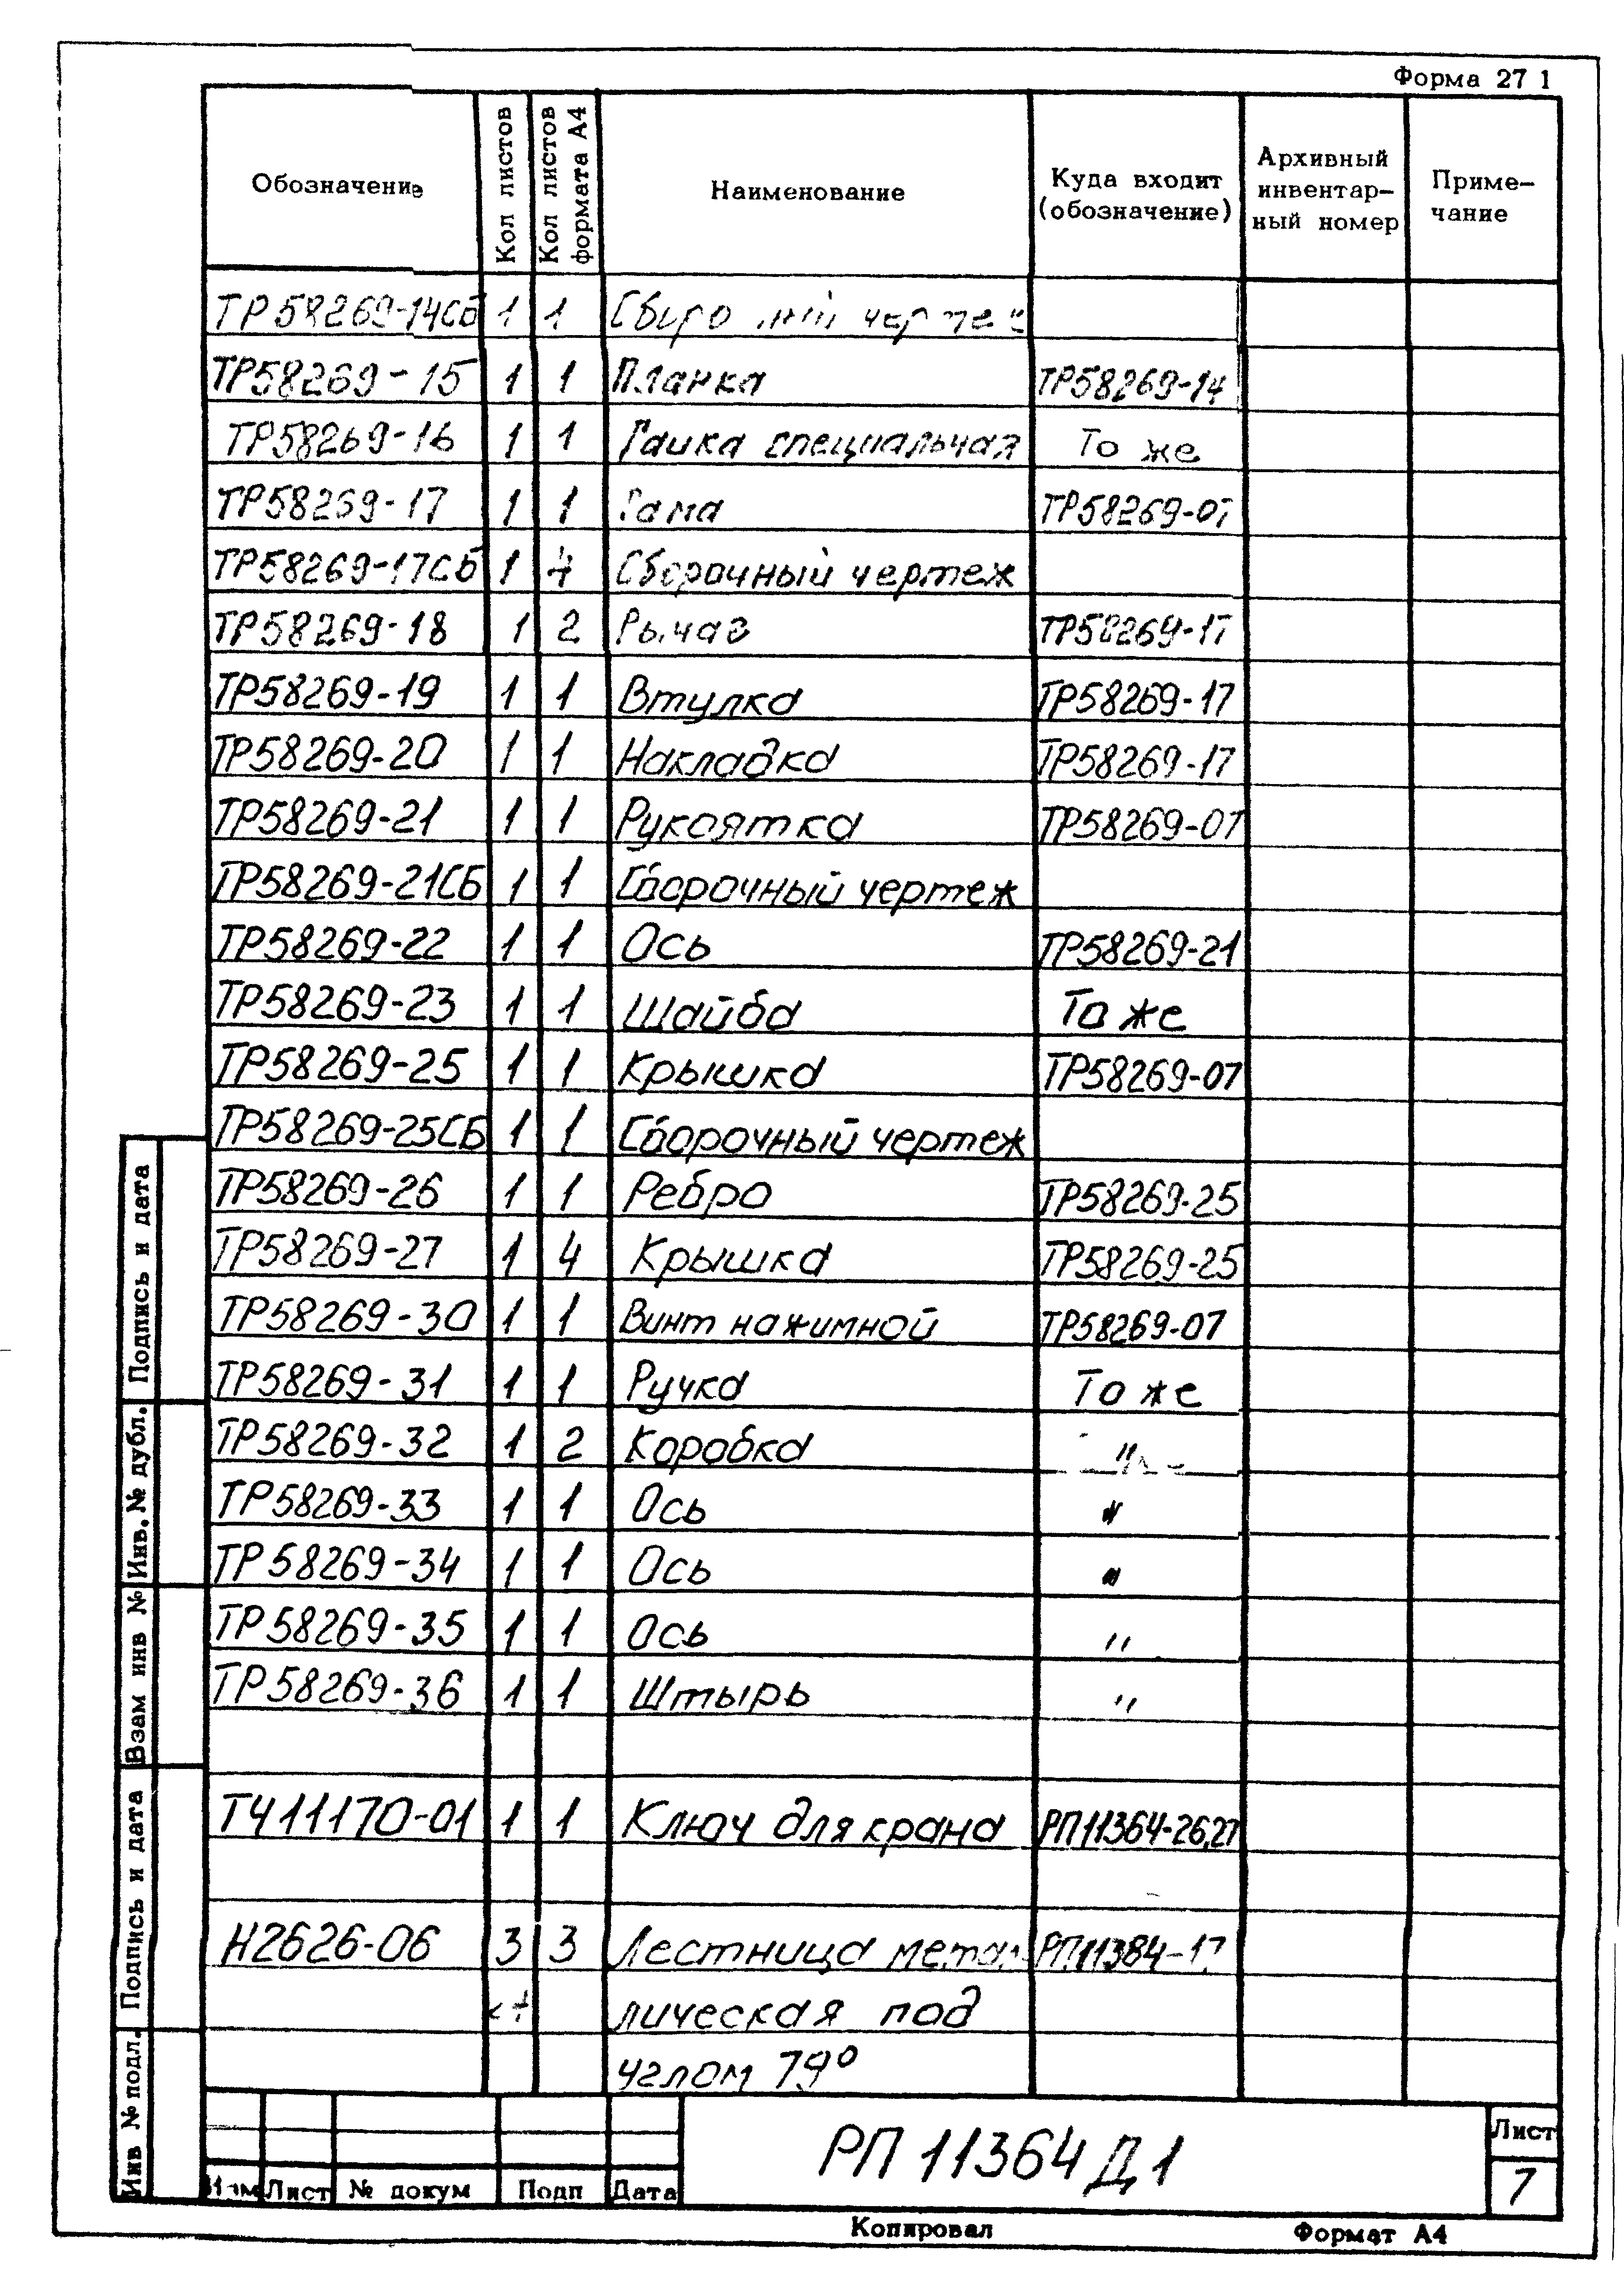 Форма 27 1
Обозначение | Кол листов | Кол листов формата А4 | Наименование | Куда входит (обозначение) | Архивный инвентар-ный номер | Приме-чание
ТР58269-14СБ 1 1
ТР58269-15 1 1 Планка ТР58269-14
ТР58269-16 1 1 Гайка специальная То же
ТР58269-17 1 1 Рама ТР58269-07
ТР58269-17СБ 1 4 Сборочный чертеж
ТР58269-18 1 2 Рычаг ТР58269-17
ТР58269-19 1 1 Втулка ТР58269-17
ТР58269-20 1 1 Накладка ТР58269-17
ТР58269-21 1 1 Рукоятка ТР58269-07
ТР58269-21СБ 1 1 Сборочный чертеж
ТР58269-22 1 1 Ось ТР58269-21
ТР58269-23 1 1 Шайба То же
ТР58269-25 1 1 Крышка ТР58269-07
ТР58269-25СБ 1 1 Сборочный чертеж
ТР58269-26 1 1 Ребро ТР58269-25
ТР58269-27 1 4 Крышка ТР58269-25
ТР58269-30 1 1 Винт нажимной ТР58269-07
ТР58269-31 1 1 Ручка То же
ТР58269-32 1 2 Коробка "
ТР58269-33 1 1 Ось "
ТР58269-34 1 1 Ось "
ТР58269-35 1 1 Ось "
ТР58269-36 1 1 Штырь "
ТЧ11170-01 1 1 Ключ для крана РП11364-26,27
Н2626-06 3 3 Лестница метал РП11384-17
лическая под
углом 79°
Подпись и дата
Инв. № дубл.
Взам инв №
Подпись и дата
Инв № подл.
РП 11364 Д1
Лист
7
Изм Лист № докум Подп Дата
Копировал Формат А4